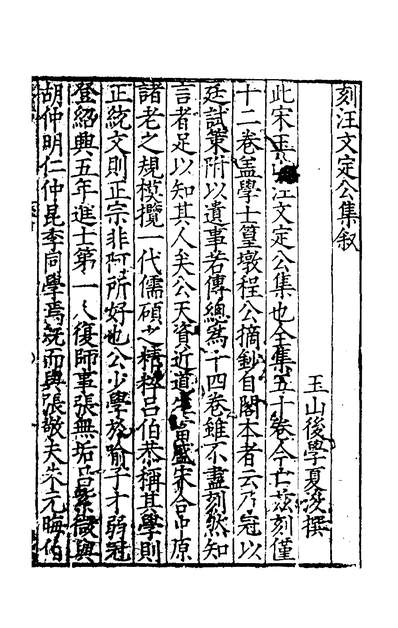 刻汪文定公集叙
玉山後學夏浚撰
此宋玉山汪文定公集也全集五十卷今亡茲刻僅
十二卷盖學士篁墩程公摘鈔自閣本者云乃冠以
廷試策附以遺事若傳總為十四卷雖不盡刻然知
言者足以知其人矣公天資近道生當盛宋合中原
諸老之規模攬一代儒碩之精粹吕伯恭稱其學則
正統文則正宗非阿所好也公少學於喻子才弱冠
登紹興五年進士第一人復師事張無垢吕紫微與
胡仲明仁仲昆季同學焉旣而與張敬夫朱元晦伯